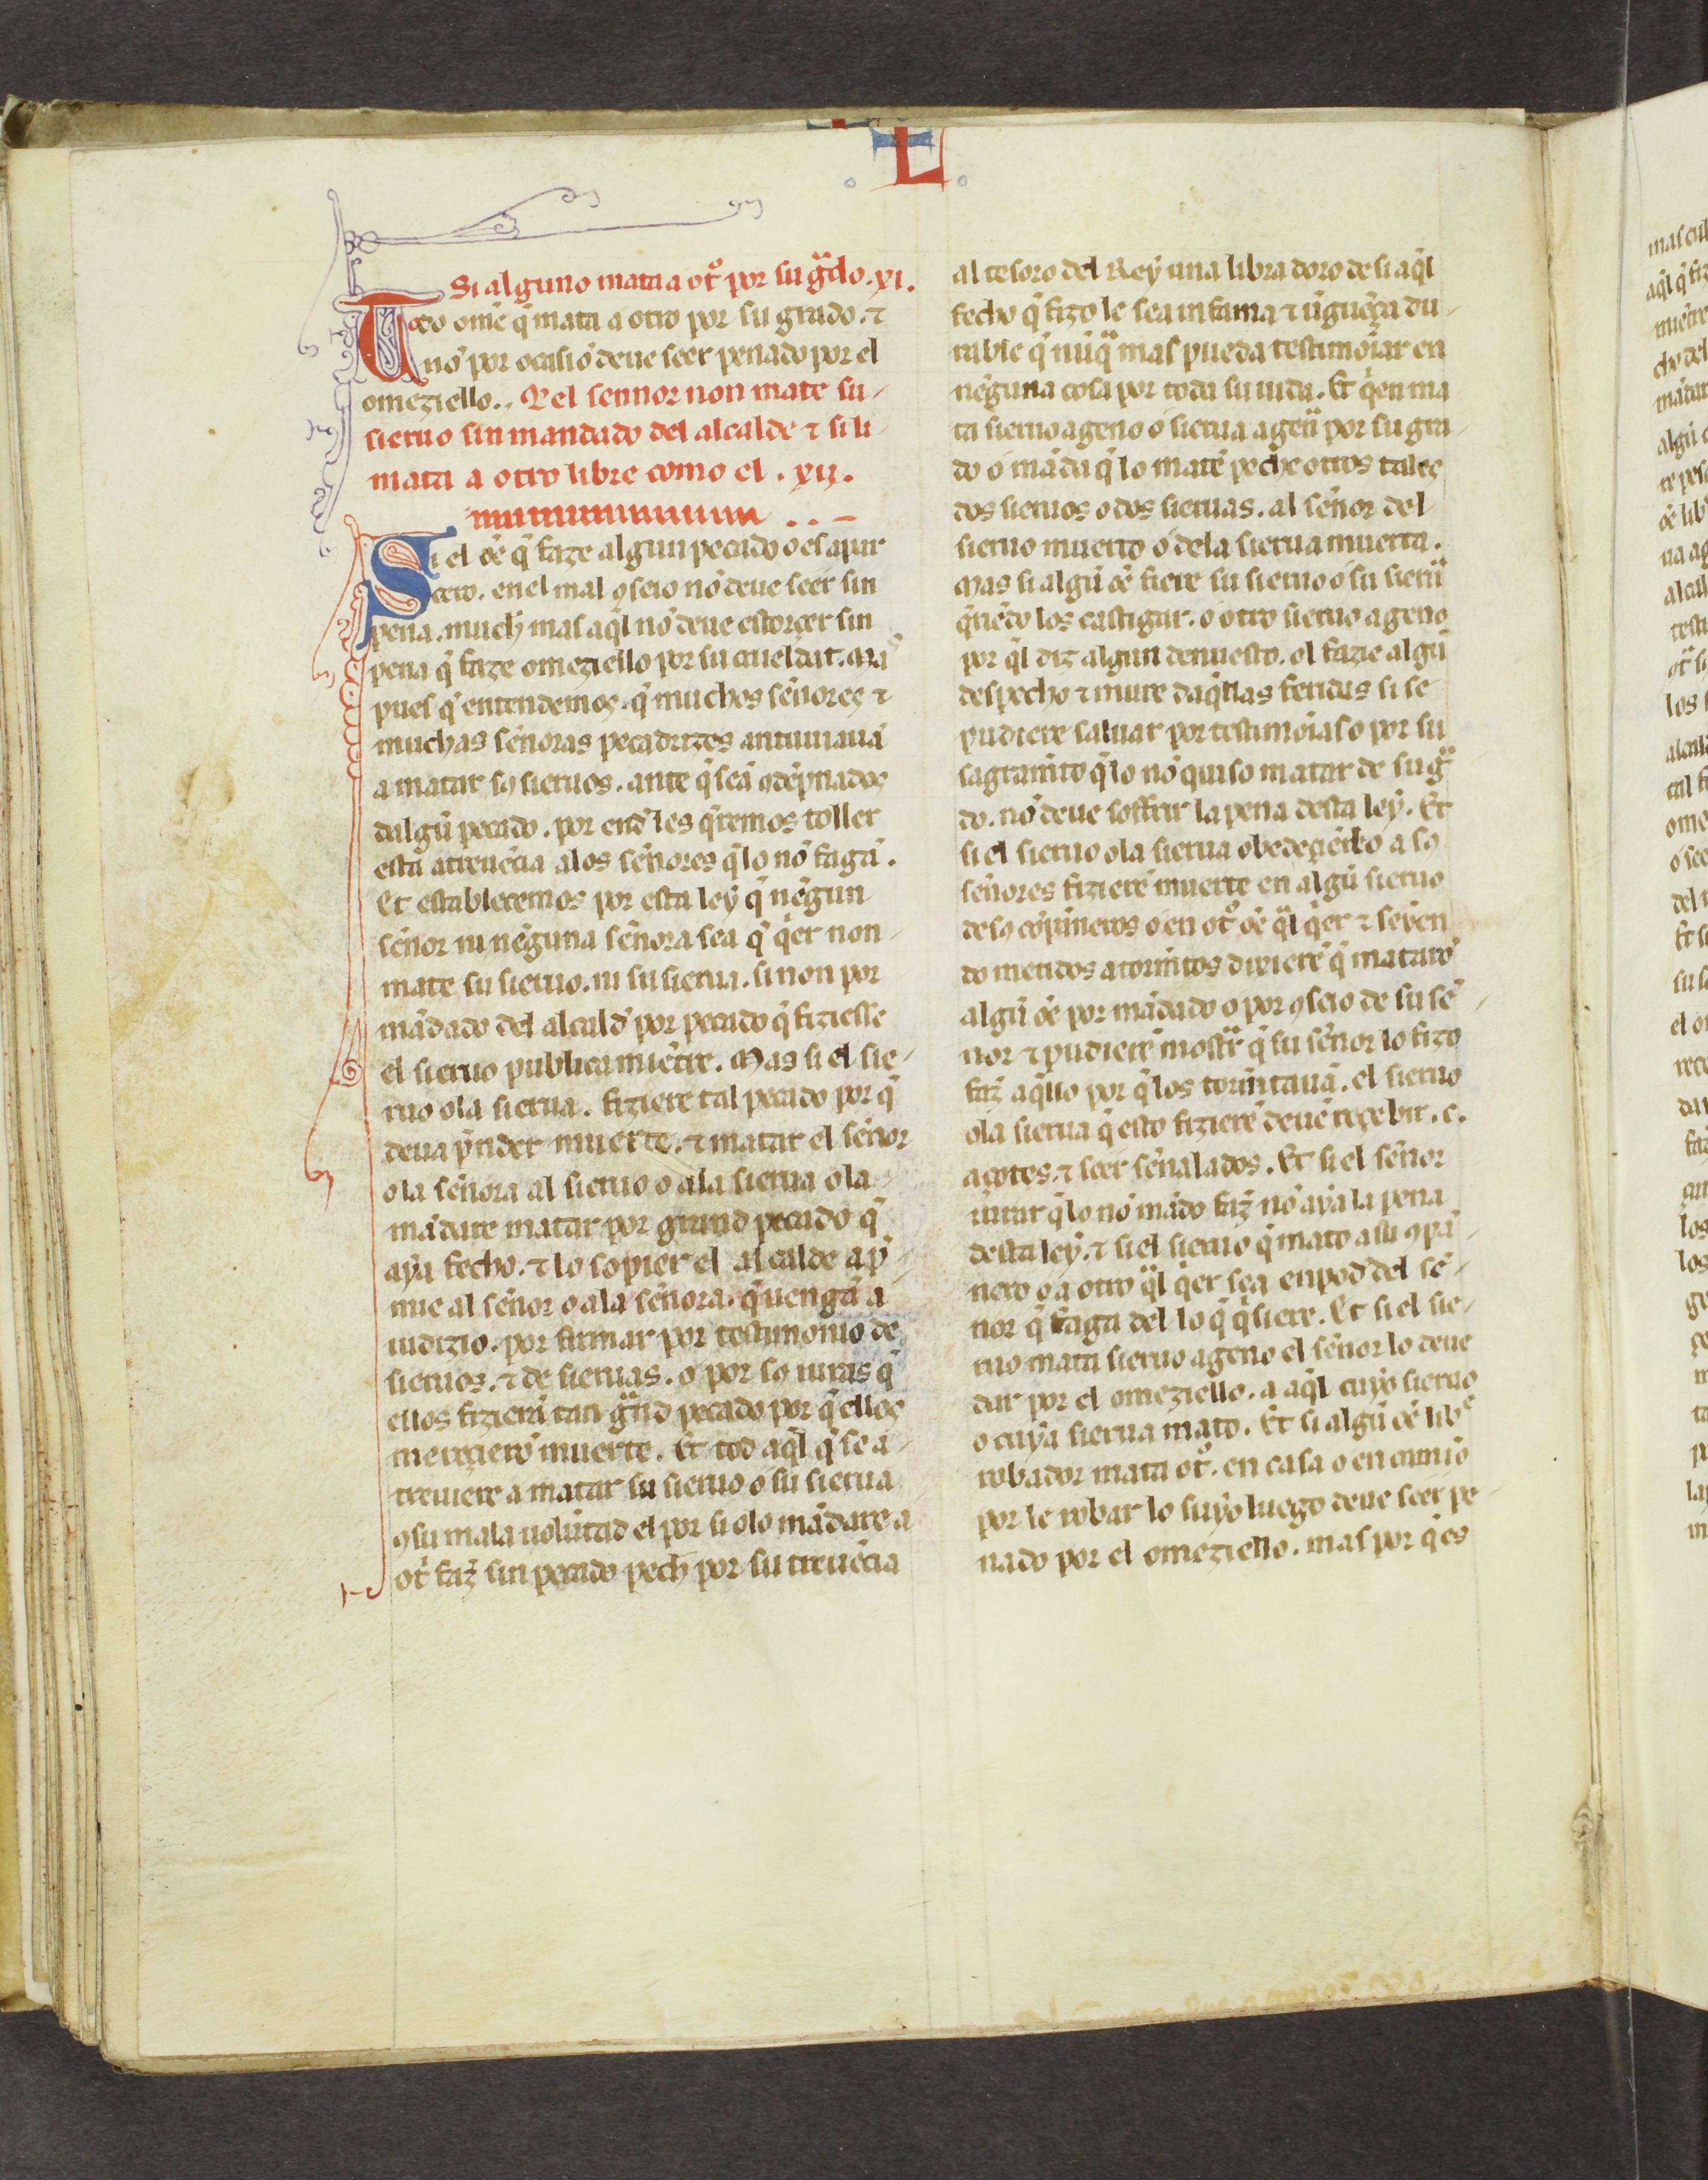 L
Si alguno mata a otº por su gᵃdo. xi.
Todo ome q̃ mata a otro por su grado. ⁊
nõ por ocasiõ deue seer penado por el
omeziello. Qel sennor non mate su
sieruo sin mandado del alcalde ⁊ si li
mata a otro libre como el. xii.
Si el õe q̃ faze algun pecado o es apar
cero. en el mal ꝯseio nõ deue seer sin
pena. much mas aq̃l nõ deue estorcer sin
pena q̃ faze omeziello por su cueldat. Mas
pues q̃ entendemos. q̃ muchos señores ⁊
muchas señoras pecadrizes antuuiauã
a matar sos sieruos. ante q̃ seã ꝯdẽpnados
dalgũ pecado. por end les q̃remos toller
esta atreuẽcia a los señores q̃ lo nõ fagã.
Et establecemos por esta ley q̃ nẽgun
señor ni nẽguna señora sea q̃ q̃er non
mate su sieruo. ni su sierua. si non por
mãdado del alcald por pecado q̃ fiziesse
el sieruo publicamiẽtre. Mas si el sie
ruo o la sierua. fiziere tal pecado por q̃
deua p̃nder muerte. ⁊ matar el señor
o la señora al sieruo o a la sierua o la
mãdare matar por grand pecado q̃
aya fecho. ⁊ lo sopier el alcalde ap̃
mie al señor o a la señora. q̃ uengã a
iudizio. por firmar por testimonio de
sieruos. ⁊ de sieruas. o por so iuras q̃
ellos fizierã tan gᵃnd pecado por q̃ ellos
mereciero muerte. Et tod aq̃l q̃ se a
treuiere a matar su sieruo o su sierua
ꝯ su mala uolũtad el por si o lo mãdare a
otº faz̃ sin pecado pech por su treuẽcia
al tesoro del Rey una libra doro de si aq̃l
fecho q̃ fizo le sea infamia ⁊ ũguẽça du
rable q̃ nũqᵃ mas pueda testimoĩar en
nẽguna cosa por toda su uida. Et q̃en ma
ta sieruo ageno o sierua agenᵃ por su gra
do o mãda q̃ lo matẽ peche otros tales
dos sieruos o dos sieruas. al señor del
sieruo muerto o de la sierua muerta.
Mas si algũ õe fiere su sieruo o su sieruᵃ
q̃riẽdo los castigar. o otro sieruo ageno
por q̃l diz algun denuesto. ol fazie algũ
despecho ⁊ mure daq̃llas feridas si se
pudiere saluar por testimoĩas o por su
sagramĩto q̃ lo nõ quiso matar de su gᵃ
do. nõ deue soffrir la pena desta ley. Et
si el sieruo o la sierua obedeçiẽdo a so
señores fizierẽ muerte en algũ sieruo
de so cõpãneros o en otº õe q̃l q̃er ⁊ seyen
do metidos a tormĩtos dixierẽ q̃ matarõ
algũ õe por mãdado o por ꝯseio de su se
ñor ⁊ pudierẽ mostᵃr q̃ su señor lo fizo
faz̃ aq̃llo por q̃ los tormĩtauã. el sieruo
o la sierua q̃ esto fizierẽ deuẽ reçebir. c.
açotes. ⁊ seer señalados. Et si el señor
iurar q̃ lo nõ mãdo faz̃ nõ aya la pena
desta ley. ⁊ si el sieruo q̃ mato a su ꝯpã
nero o a otro q̃l q̃er sea en pod del se
ñor q̃ faga del lo q̃ q̃siere. Et si el sie
ruo mata sieruo ageno el señor lo deue
dar por el omeziello. a aq̃l cuyo sieruo
o cuya sierua mato. Et si algũ õe libᵉ
robador mata otº. en casa o en camĩo
por le robar lo suyo luego deue seer pe
nado por el omeziello. mas por q̃ es